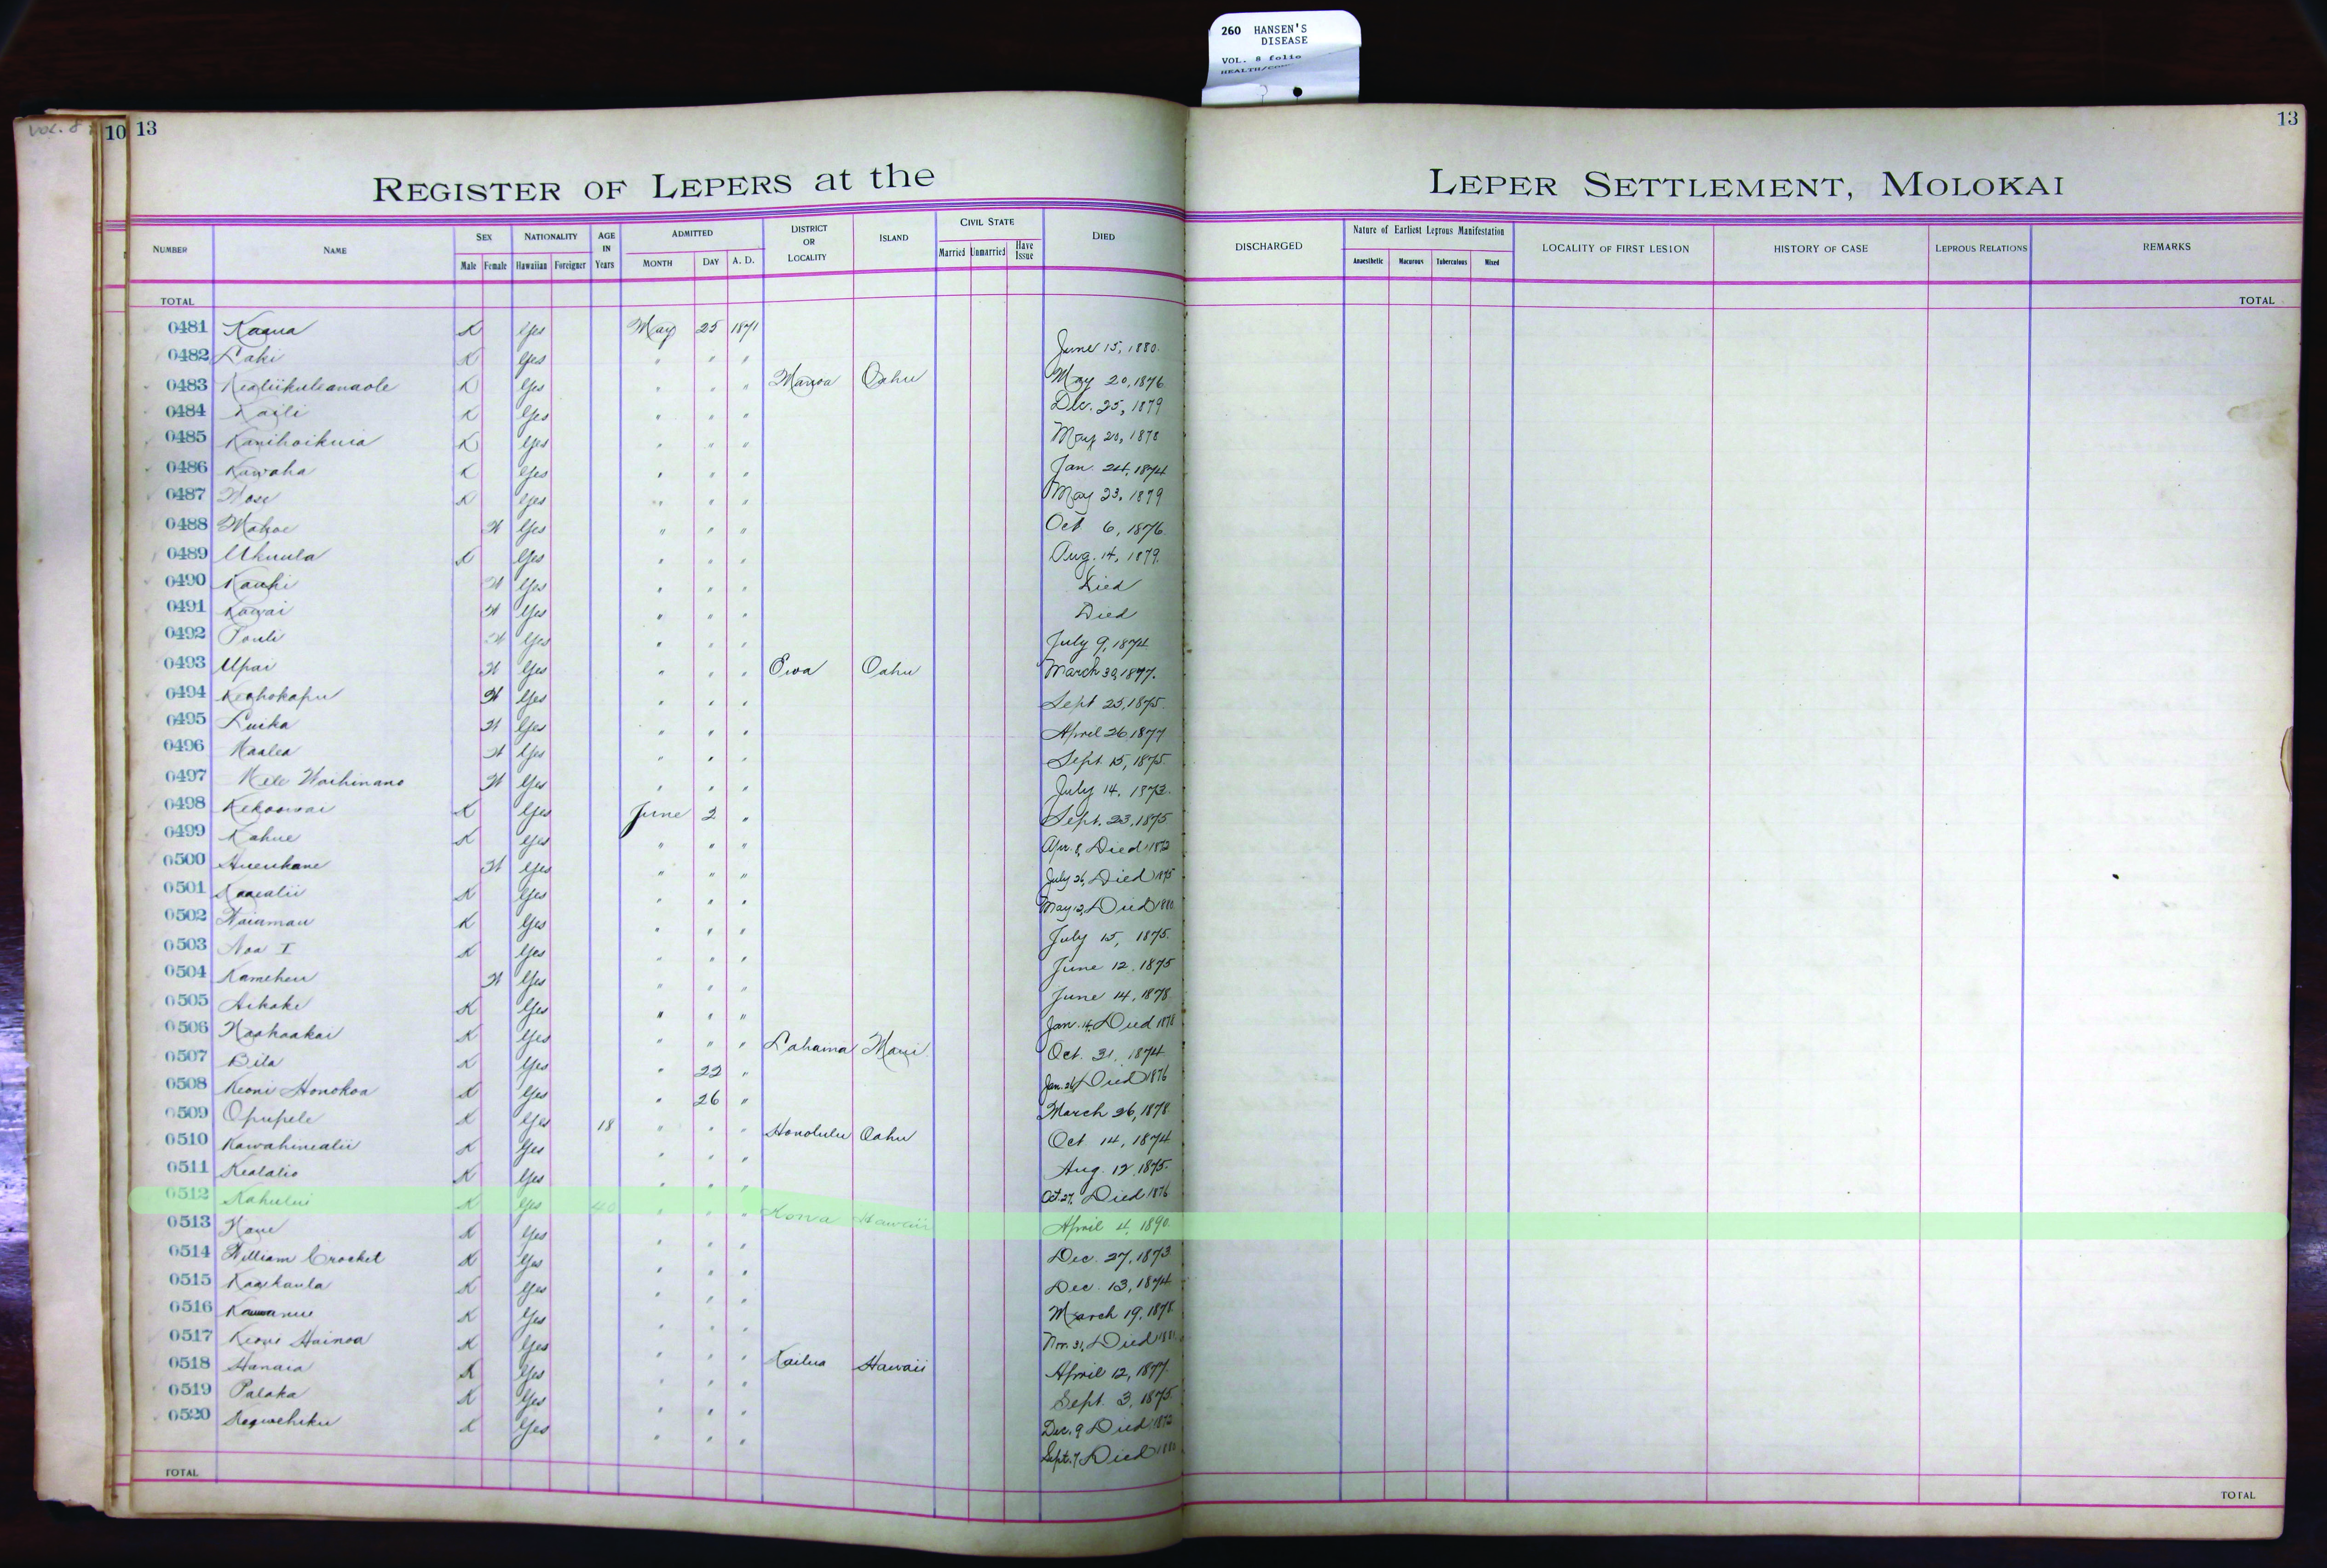 260 HANSEN'S
DISEASE
VOL. 8 folio
VOL. 8
10 13
13
REGISTER OF LEPERS at the LEPER SETTLEMENT, MOLOKAI
NUMBER NAME SEX Male Female NATIONALITY Hawaiian Foreigner AGE IN Years ADMITTED MONTH DAY A. D. DISTRICT OR LOCALITY ISLAND CIVIL STATE Married Unmarried Have Issue DIED DISCHARGED Nature of Earliest Leprous Manifestation Anaesthetic Macurous Tuberculous Mixed LOCALITY OF FIRST LESION HISTORY OF CASE LEPROUS RELATIONS REMARKS
TOTAL TOTAL
0481 Kaaua K Yes May 25 1871
0482 Laki K Yes " " " June 15, 1880
0483 Kealiikuleanaole K Yes " " " Manoa Oahu May 20, 1876
0484 Kaili K Yes " " " Dec. 25, 1879
0485 Kanihoikuia K Yes " " " May 20, 1878
0486 Kawaha K Yes " " " Jan. 24, 1874
0487 K Yes " " " May 23, 1879
0488 Mahoe W Yes " " " Oct 6, 1876
0489 Ukuula K Yes " " " Aug. 14, 1879
0490 Kauhi W Yes " " " Died
0491 Kawai W Yes " " " Died
0492 Pouli W Yes " " " July 9, 1874
0493 Upai W Yes " " " Ewa Oahu March 30, 1877.
0494 Keohokapu W Yes " " " Sept 25, 1875.
0495 Luika W Yes " " " April 26 1877
0496 Maalea W Yes " " " Sept. 15, 1875.
0497 Mele Waihinano W Yes " " " July 14, 1873.
0498 Kekoowai K Yes June 2 " Sept. 23, 1875
0499 Kahue K Yes " " " Apr. 8, Died 1872
0500 Hueukane W Yes " " " July 26, Died 1875
0501 Kaaealii K Yes " " " May 12, Died 1880
0502 Waiamau K Yes " " " July 15, 1875.
0503 Noa I K Yes " " " June 12, 1875
0504 Kameheu W Yes " " " June 14, 1878
0505 Aikake K Yes " " " Jan. 14, Died 1878
0506 Naahaakai K Yes " " " Lahaina Maui Oct. 31, 1874
0507 Bila K Yes " 22 " Jan. 26, Died 1876
0508 Keoni Honokoa K Yes " 26 " March 26, 1878
0509 Opupele K Yes 18 " " " Honolulu Oahu Oct 14, 1874
0510 Kawahinealii K Yes " " " Aug. 12, 1875.
0511 Kealalio K Yes " " " Oct. 27, Died 1876
0512 Kahului K Yes 40 " " " Kona Hawaii April 4, 1890.
0513 K Yes " " " Dec. 27, 1873
0514 William Crocket K Yes " " " Dec. 13, 1874
0515 Kaaikaula K Yes " " " March 19, 1878
0516 K Yes " " " Nov. 31, Died 1881
0517 Keoni Hainoa K Yes " " " Kailua Hawaii April 12, 1877.
0518 Hanaia K Yes " " " Sept. 3, 1875.
0519 Palaka K Yes " " " Dec. 9 Died 1872
0520 K Yes " " " Sept. 7, Died 1880
TOTAL TOTAL